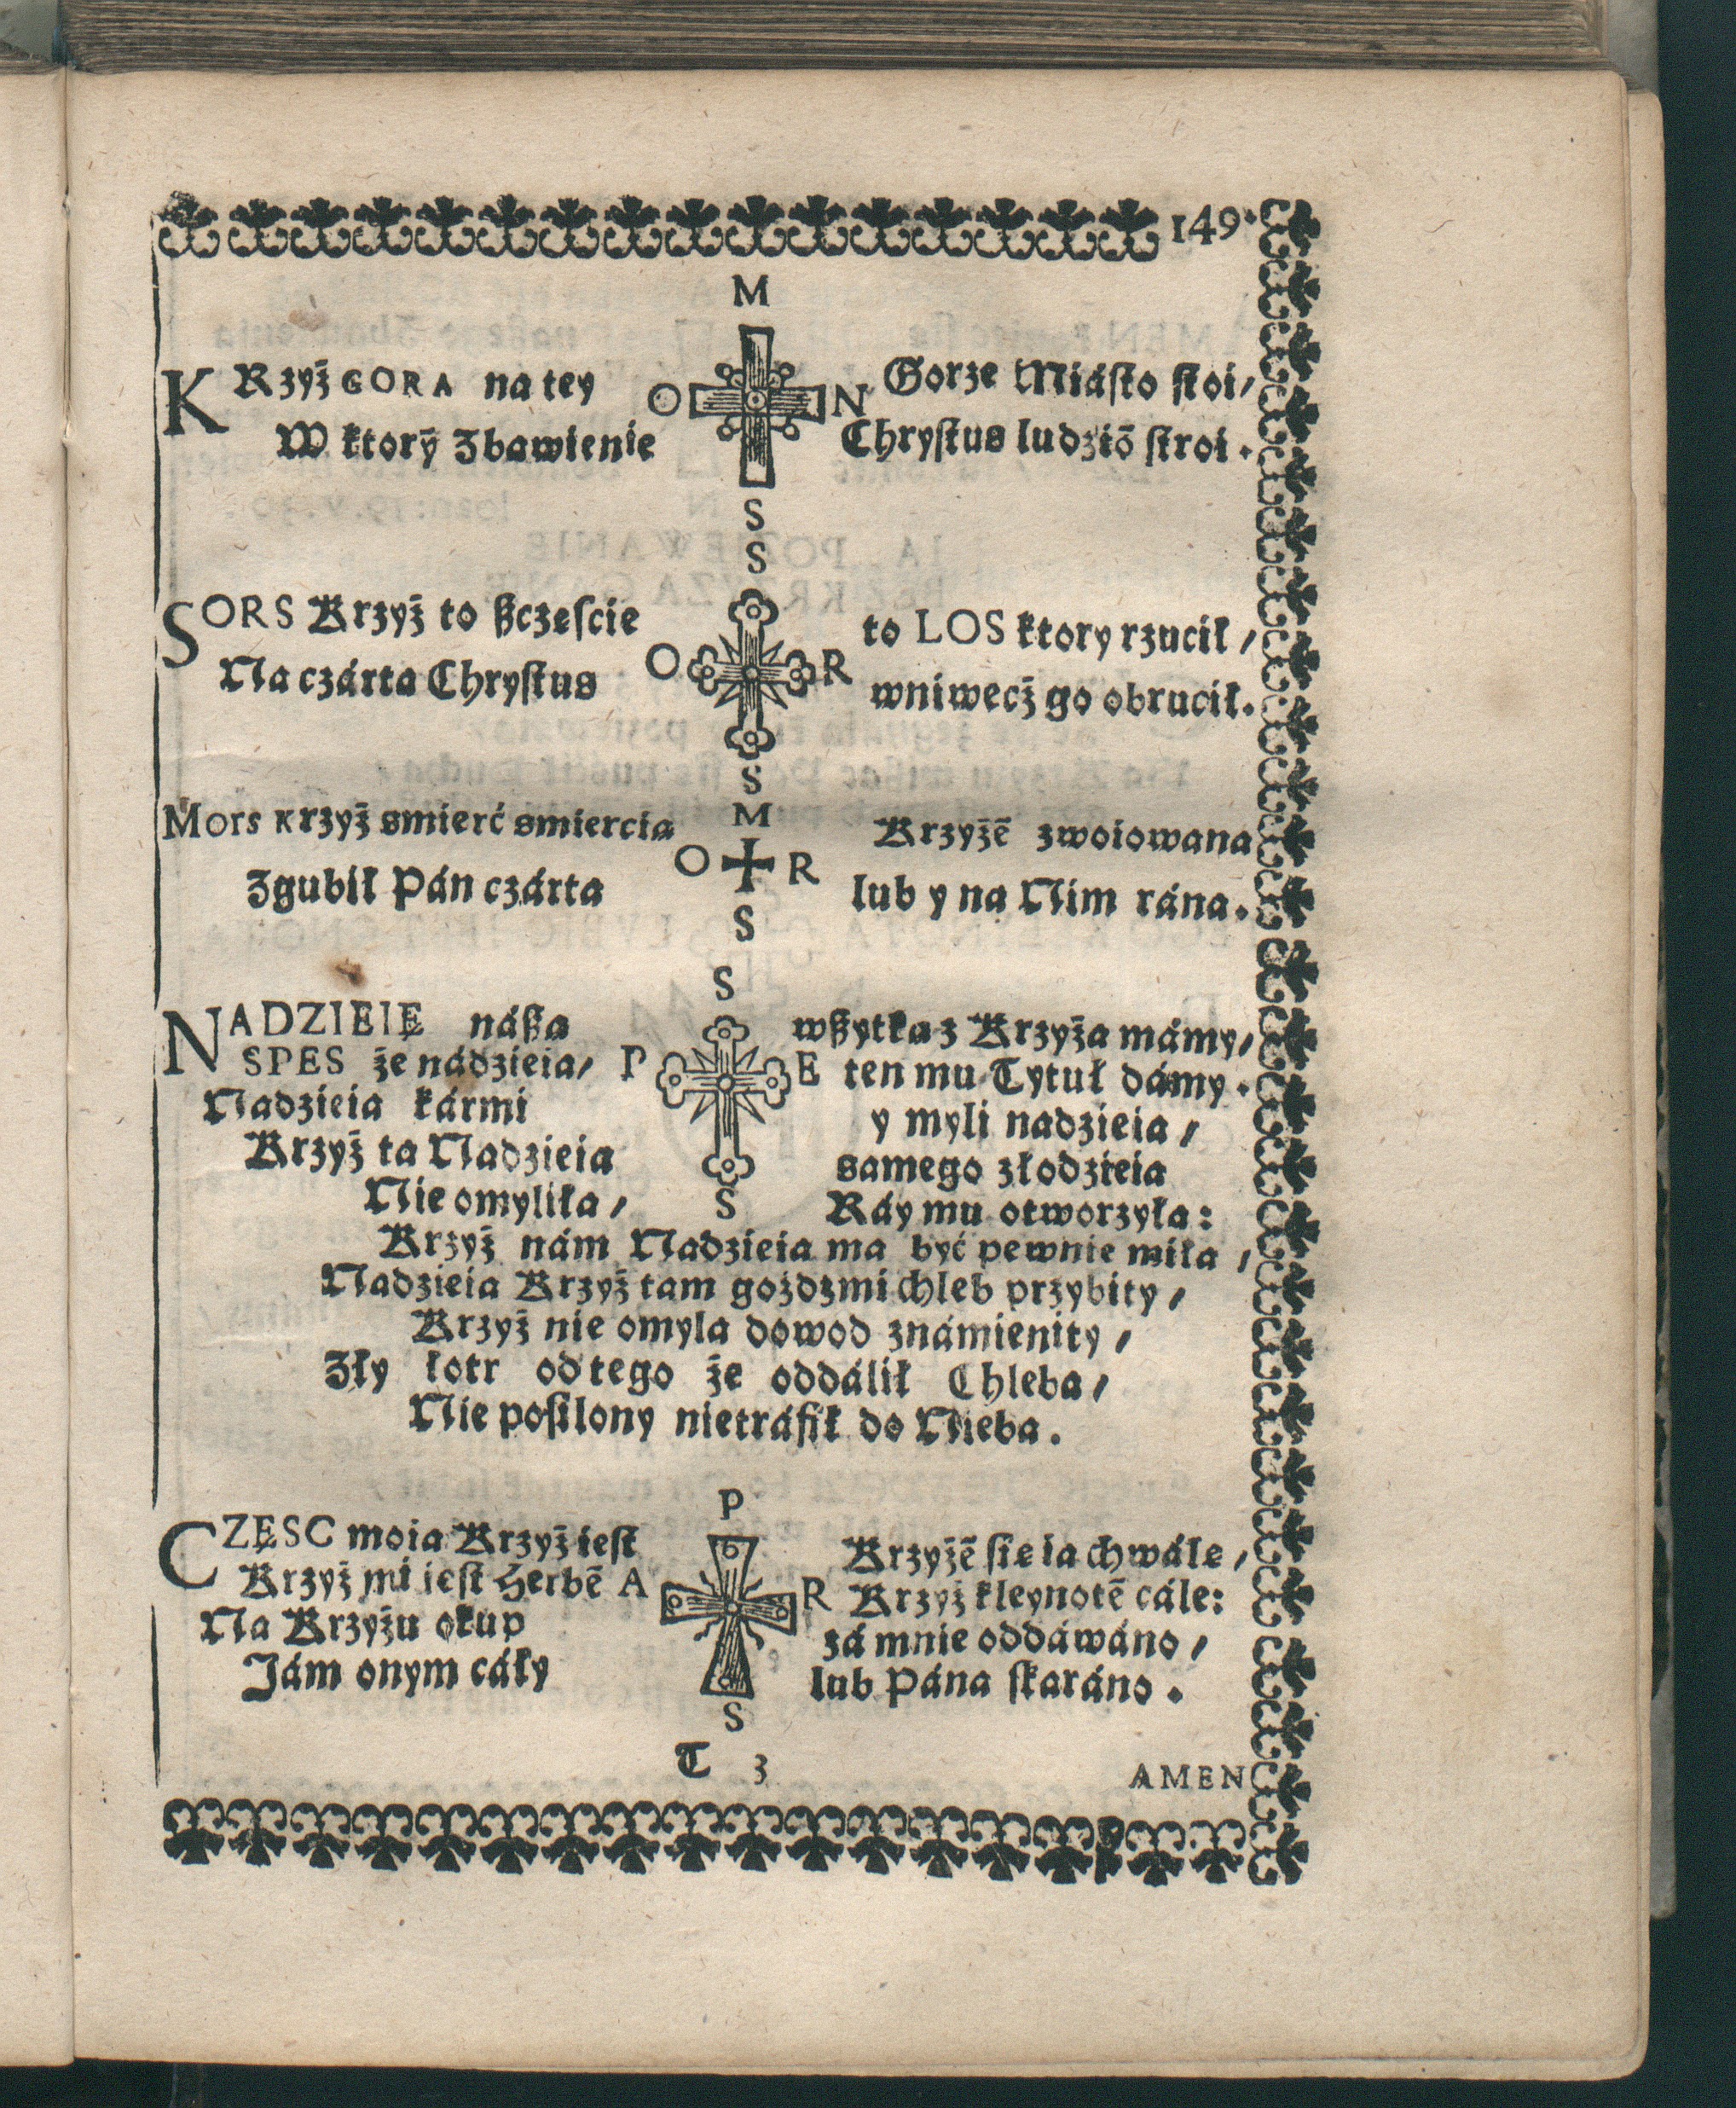 149.
M
KRzyż GORA na tey O N Gorze Miásto stoi/
W ktorỹ Zbawienie Chrystus ludziõ stroi.
S
S
SORS Krzyż to ßczescie O R to LOS ktory rzucił/
Na czárta Chrystus wniwecż go obrucił.
S
M
Mors Krzyż smierć smiercia O R Krzyżẽ zwoiowana
Zgubił Pán czárta lub y na Nim rána.
S
S
NADZIEIĘ náßa wßytka z Krzyża mámy/
SPES że nádzieia/ P E ten mu Tytuł dámy.
Nadzieia kármi y myli nadzieia/
Krzyż ta Nadzieia samego złodzieia
Nie omyliła/ S Ráy mu otworzyła:
Krzyż nám Nadzieia ma być pewnie miła/
Nadzieia Krzyż tam gożdzmi chleb przybity/
Krzyż nie omyla dowod známienity/
Zły łotr od tego że oddálił Chleba/
Nie posilony nietráfił do Nieba.
P
CZĘSC moia Krzyż iest Krzyżẽ sie ia chwále/
Krzyż mi iest Herbẽ A R Krzyż kleynotẽ cále:
Na Krzyżu okup zá mnie oddáwáno/
Jám onym cáły lub Pána skaráno.
S
T 3 AMEN